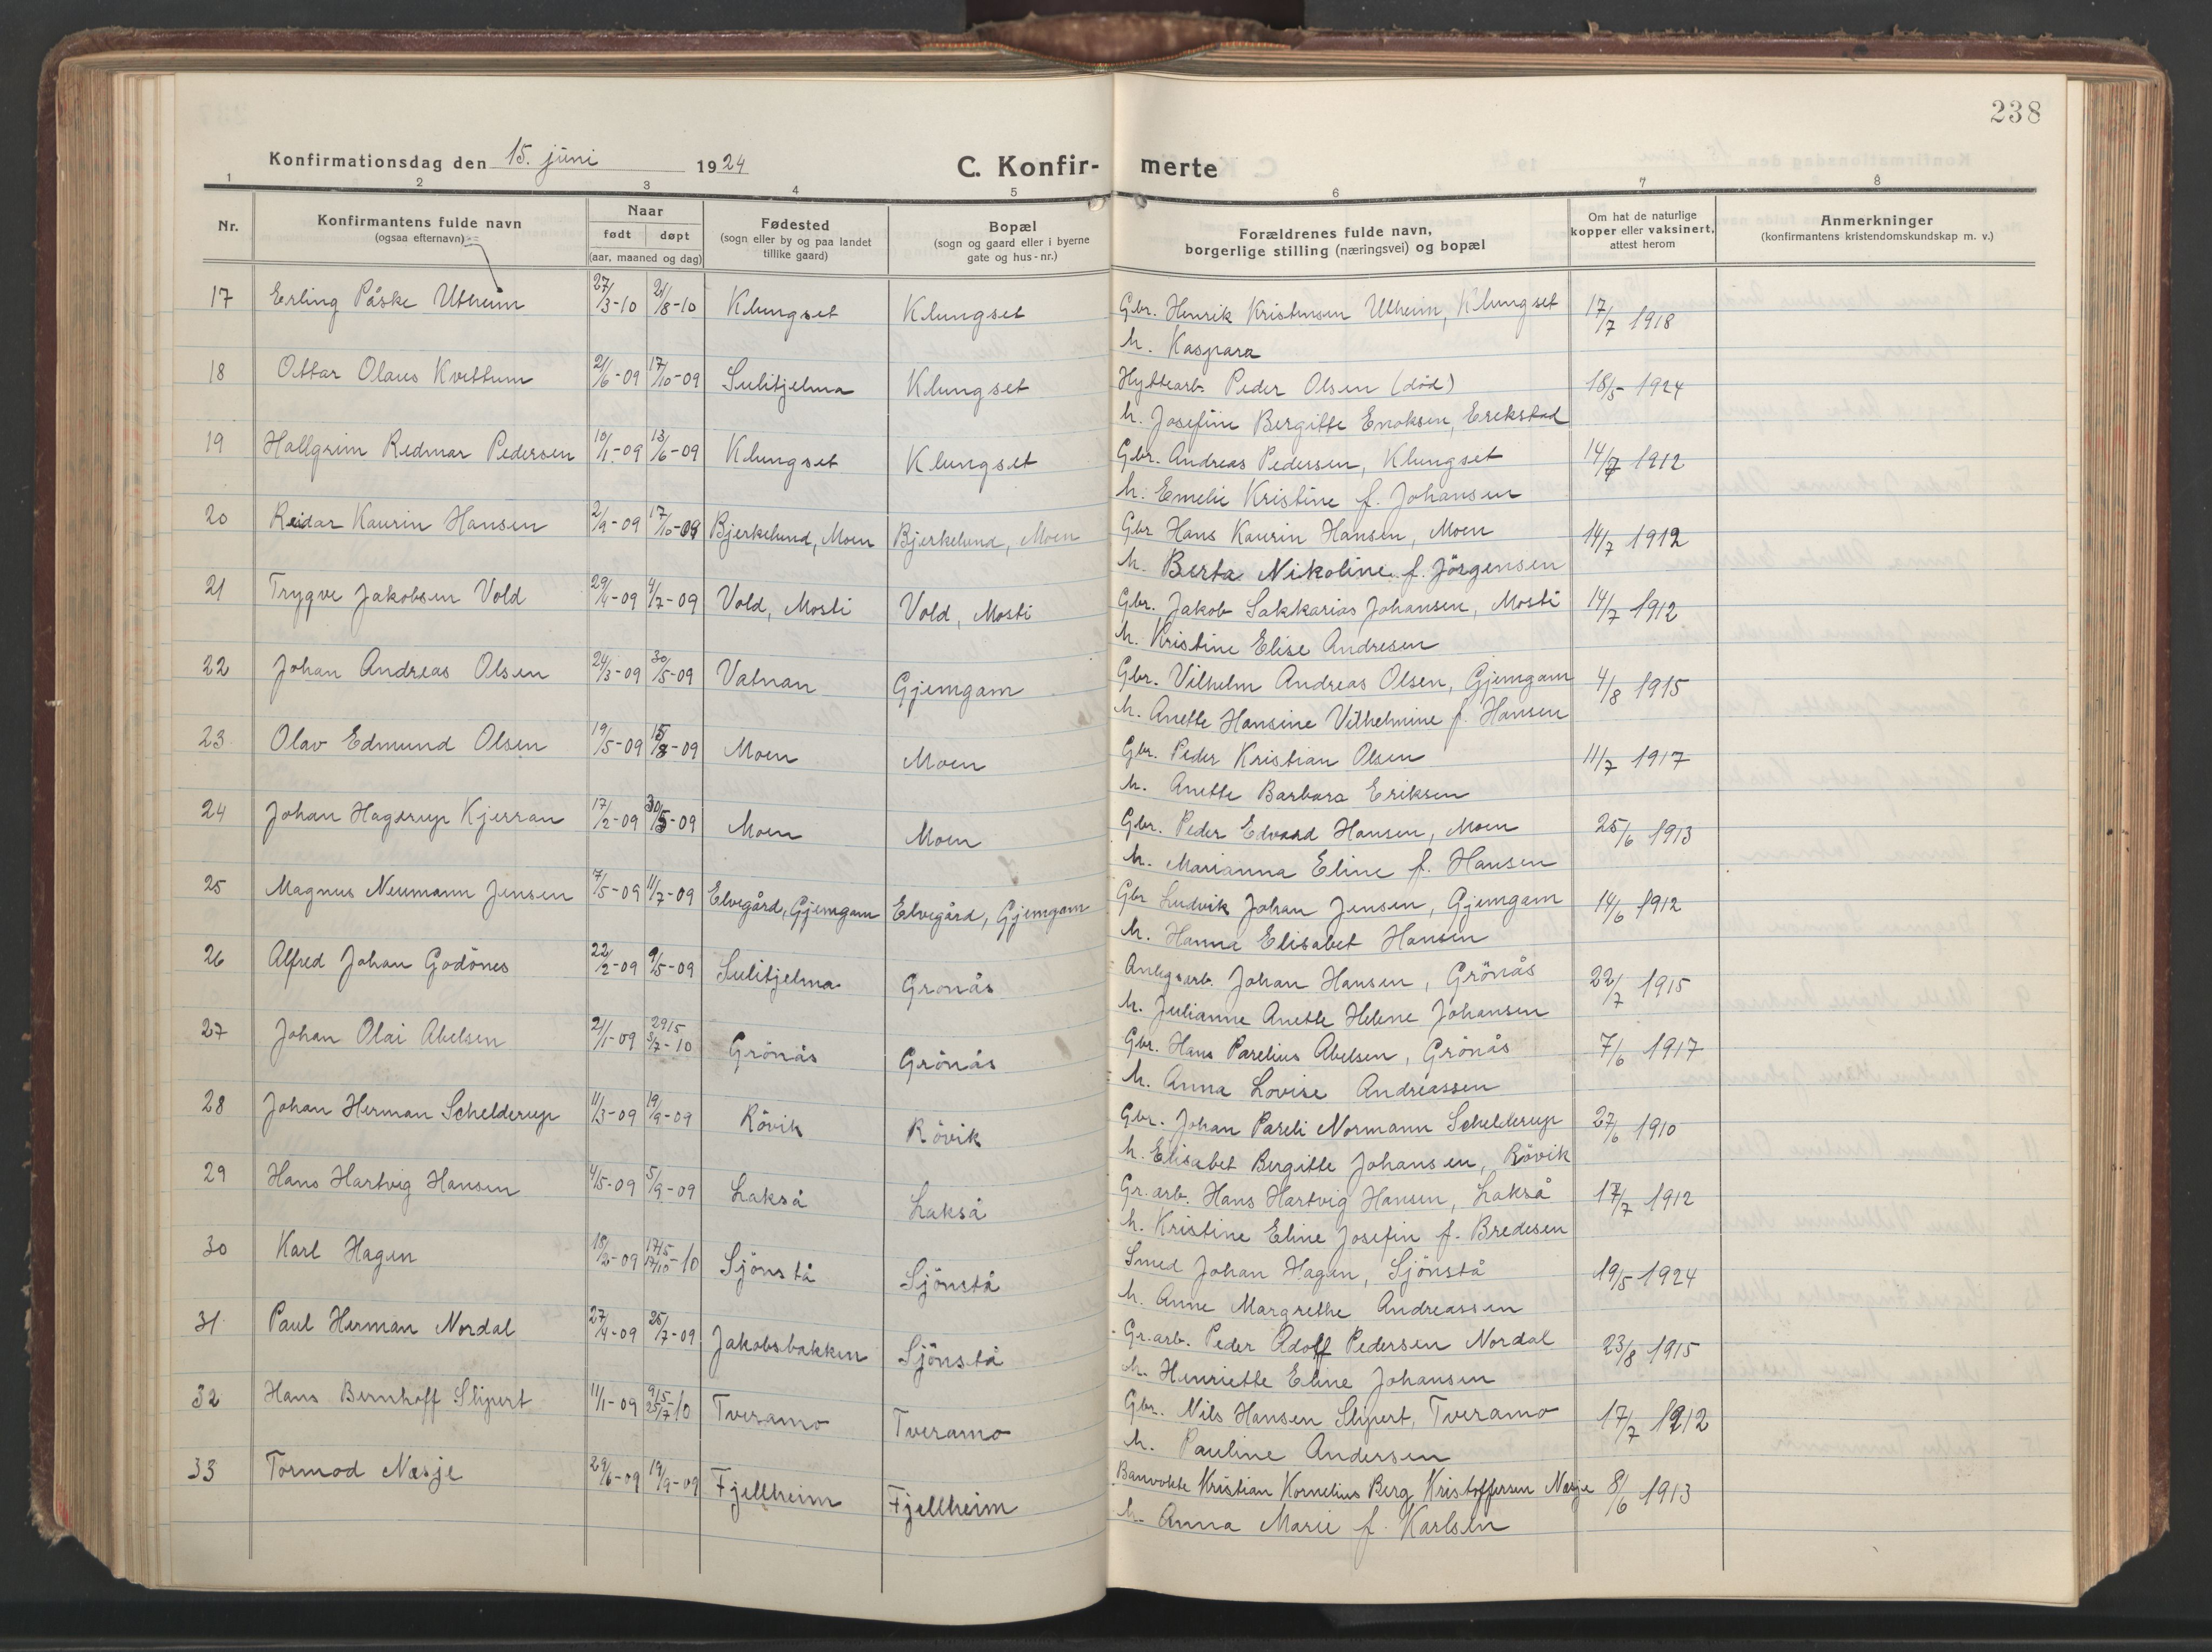 238
Konfirmationsdag den 15. juni 1924 C. Konfir- merte
1 2 3 4 5 6 7 8
Nr. Konfirmantens fulde navn (ogsaa efternavn) Naar født døpt (aar, maaned og dag) Fødested (sogn eller by og paa landet tillike gaard) Bopæl (sogn og gaard eller i byerne gate og hus-nr.) Forældrenes fulde navn, borgerlige stilling (næringsvei) og bopæl Om hat de naturlige kopper eller vaksinert, attest herom Anmerkninger (konfirmantens kristendomskundskap m. v.)
17 Erling Påske Utheim 27/3-10 21/8-10 Klungset Klungset Gbr. Henrik Kristensen Utheim, Klungset 17/7 1918
h. Kaspara
18 Ottar Olaus Kvettum 21/6-09 17/10-09 Sulitjelma Klungset Hyttearb. Peder Olsen (död) 18/5-1924
h. Josefine Bergitte Enoksen, Erikstad
19 Hallgrim Redmar Pedersen 10/1-09 13/6-09 Klungset Klungset Gbr. Andreas Pedersen, Klungset 14/7 1912
h. Emelie Kristine f. Johansen
20 Reidar Kaurin Hansen 2/9-09 17/10-09 Bjerkelund, Moen Bjerkelund, Moen Gbr Hans Kaurin Hansen, Moen 14/7 1912
h. Berta Nikoline f. Jörgensen
21 Trygve Jakobsen Vold 29/4-09 4/7-09 Vold, Mosti Vold, Mosti Gbr. Jakob Sakkarias Johansen, Mosti 14/7 1912
h. Kristine Elise Andresen
22 Johan Andreas Olsen 24/3-09 30/5-09 Vatnan Gjemgam Gbr. Vilhelm Andreas Olsen, Gjemgam 4/8 1915
h. Anette Hansine Vilhelmine f. Hansen
23 Olav Edmund Olsen 19/5-09 15/8-09 Moen Moen Gbr. Peder Kristian Olsen 11/7 1917
h. Anette Barbara Eriksen
24 Johan Hagerup Kjerran 17/2-09 30/5-09 Moen Moen Gbr. Peder Edvard Hansen, Moen 25/6 1913
h. Marianna Eline f. Hansen
25 Magnus Neumann Jensen 7/5-09 11/7-09 Elvegård, Gjemgam Elvegård, Gjemgam Gbr Ludvik Johan Jensen, Gjemgam 14/6 1912
h. Hanna Elisabet Hansen
26 Alfred Johan Godönes 22/2-09 9/5-09 Sulitjelma Gronås Anlegsarb. Johan Hansen, Grönås 22/7 1915
h. Julianne Anette Helene Johansen
27 Johan Olai Abelsen 21/1-09 29/5 3/7-10 Grönås Grönås Gbr. Hans Parelius Abelsen, Grönås 7/6 1917
h. Anna Lovise Andreassen
28 Johan Herman Schelderup 11/3-09 19/9-09 Rövik Rövik Gbr. Johan Pareli Normann Schelderup 27/6 1910
h. Elisabet Bergitte Johansen, Rövik
29 Hans Hartvig Hansen 4/5-09 5/9-09 Lakså Lakså Gr.arb. Hans Hartvig Hansen, Lakså 17/7 1912
h. Kristine Eline Josefin f. Bredesen
30 Karl Hagen 18/2-09 17/5 17/10-10 Sjönstå Sjönstå Smed Johan Hagen, Sjönstå 19/5 1924
h. Anne Margrethe Andreassen
31 Paul Herman Nordal 27/4-09 25/7-09 Jakobsbakken Sjönstå Gr.arb. Peder Adolf Pedersen Nordal 23/8 1915
h. Henriette Eline Johansen
32 Hans Bernhoff Slipert 11/1-09 9/5 25/7-10 Tveramo Tveramo Gbr. Nils Hansen Slipert, Tveramo 17/7 1912
h. Pauline Andersen
33 Tormod Næsje 29/6-09 19/9-09 Fjellheim Fjellheim Banvokte Kristian Kornelius Berg Kristoffersen Næsje 8/6 1913
h. Anna Marie f. Karlsen